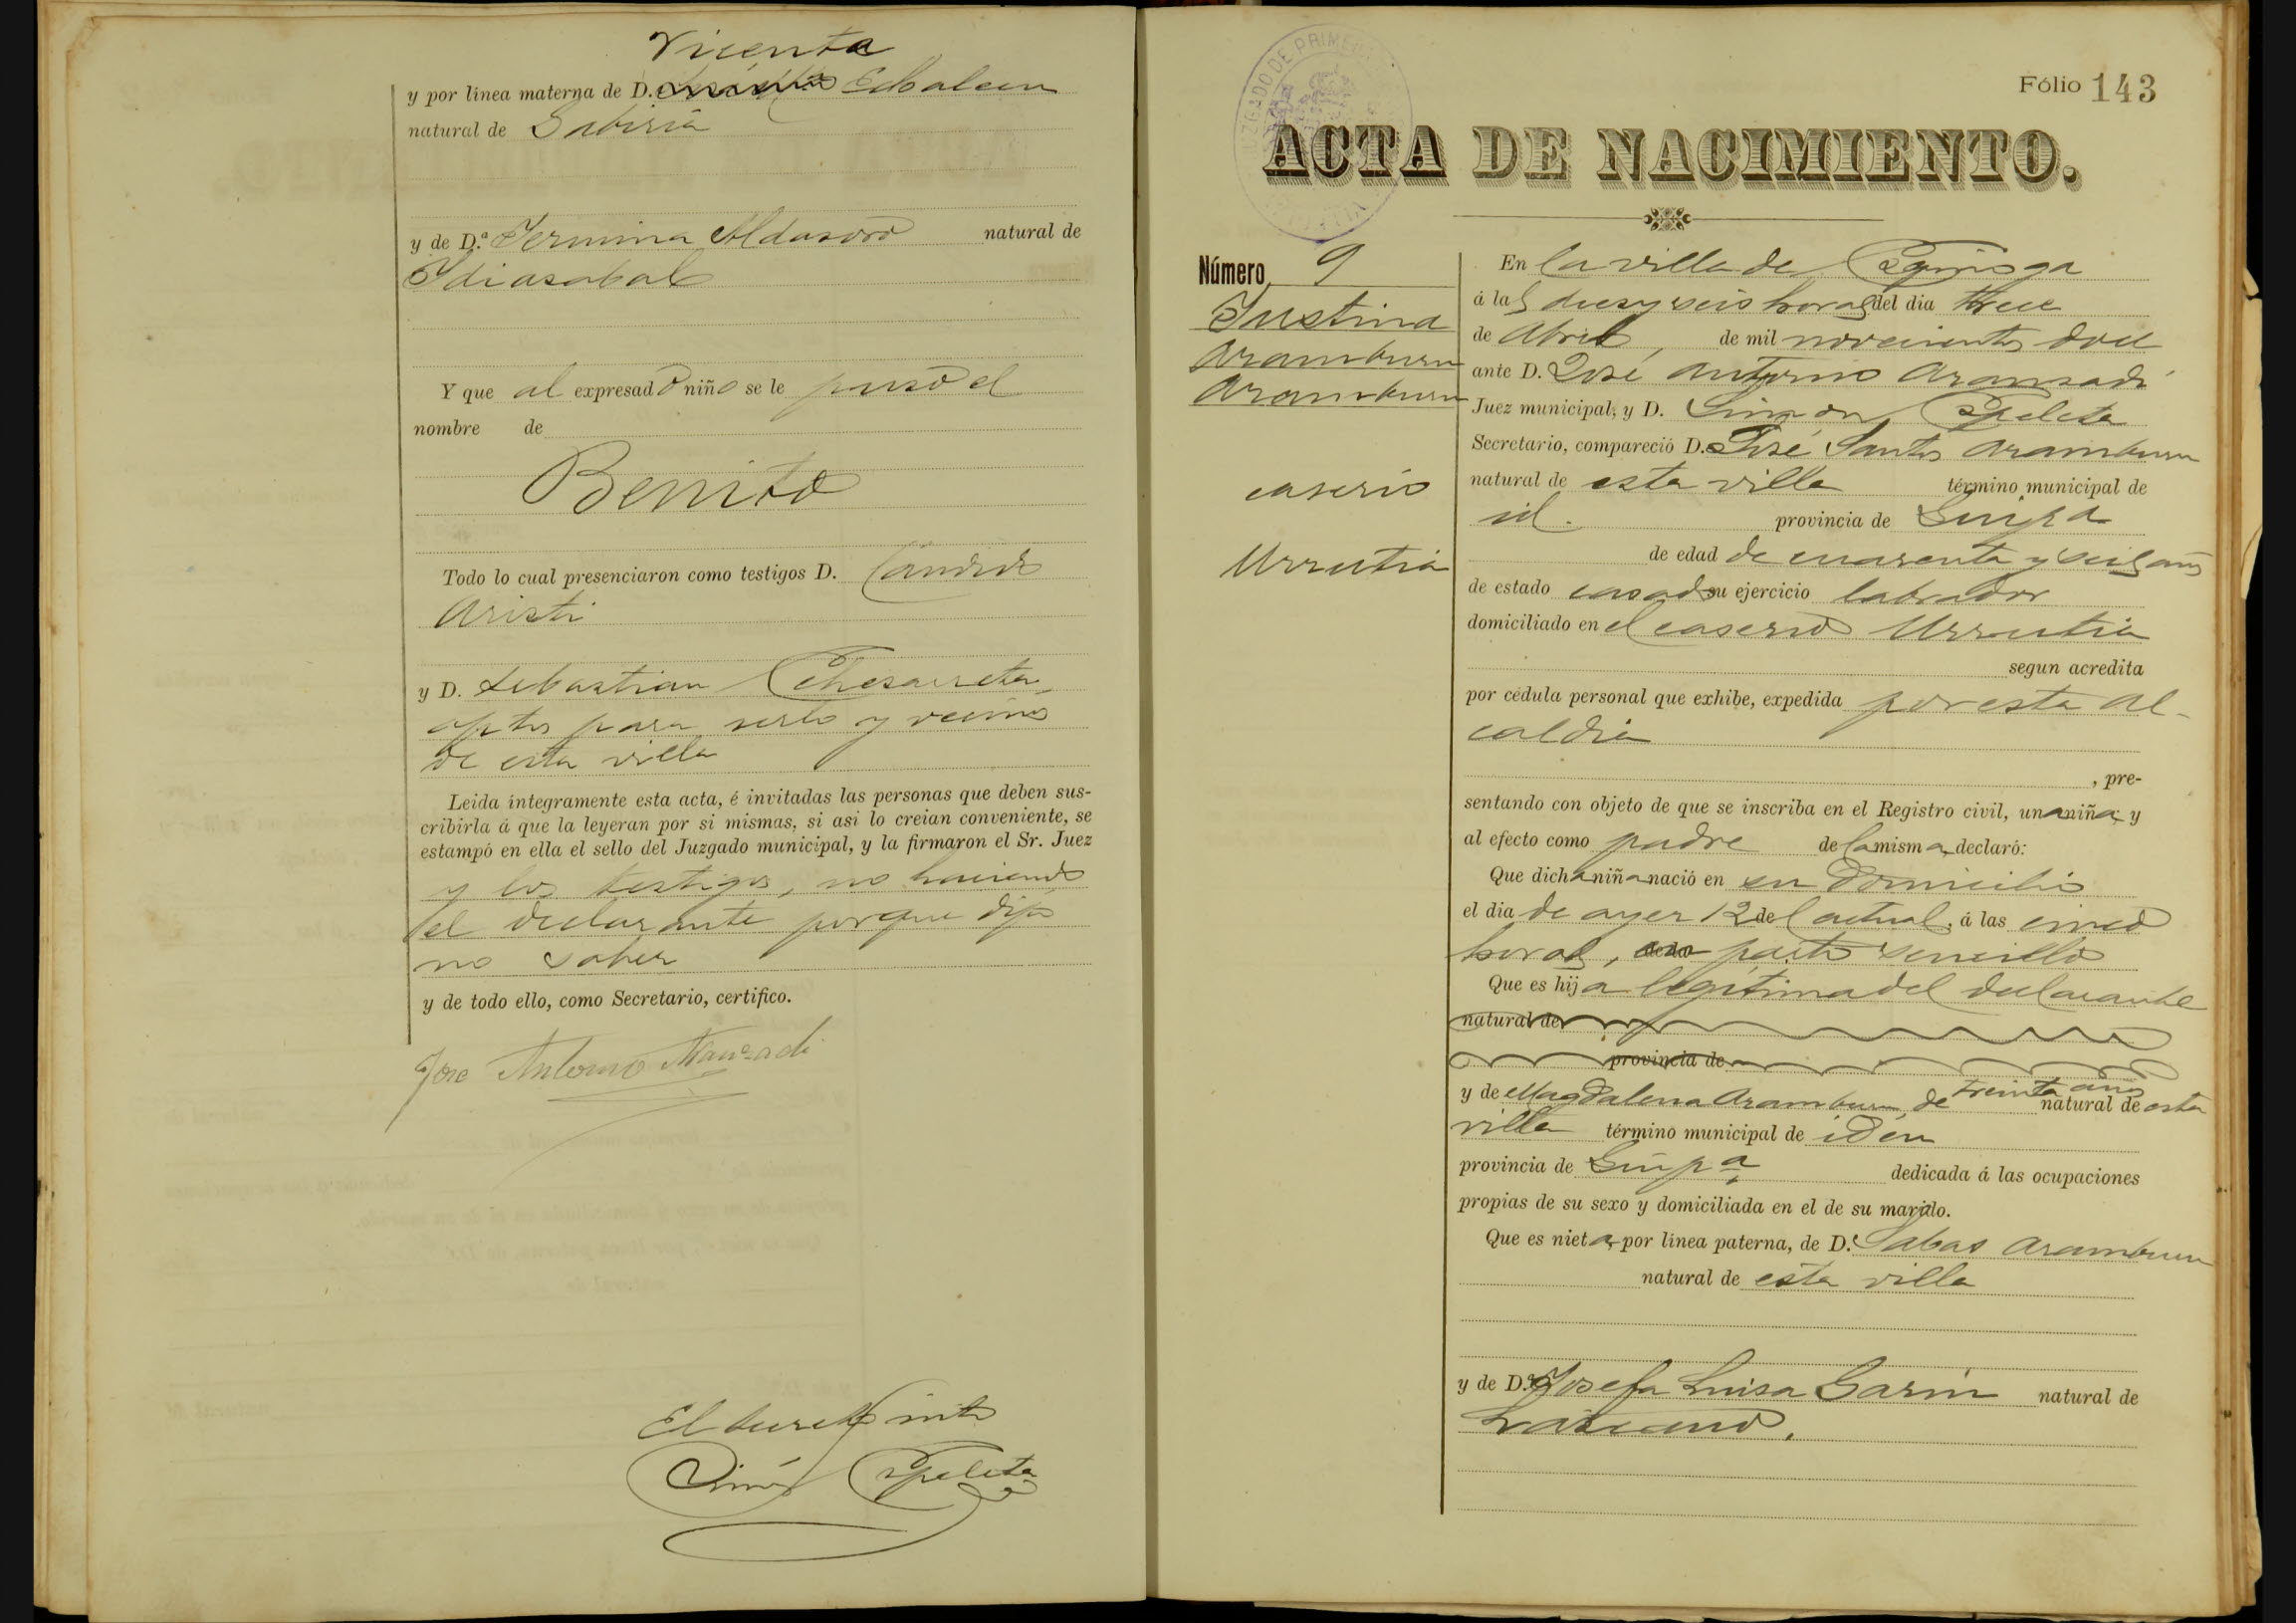 Vicenta
y por línea materna de D. Echalecu
natural de Sabiria
y de D.ª Fermina Aldasoro natural de
Idiasabal
Y que al expresado niño se le puso el
nombre de
Benito
Todo lo cual presenciaron como testigos D. Candido
Aristi
y D. Sebastian Echesarreta,
aptos para serlo y vecinos
de esta villa
Leida íntegramente esta acta, é invitadas las personas que deben sus-
cribirla á que la leyeran por si mismas, si asi lo creian conveniente, se
estampó en ella el sello del Juzgado municipal, y la firmaron el Sr. Juez
y los testigos, no haciendo
el declarante porque dijo
no saber
y de todo ello, como Secretario, certifico.
Jose Antonio Aranzadi
El
Simón Apeleta
JUZGADO DE PRIME
Fólio 143
ACTA DE NACIMIENTO.
Número 9
Justina
Aramburu
Aramburu
caserio
Urrutia
En la villa de
á las diez y seis horas del dia trece
de Abril, de mil novecientos doce
ante D. José Antonio Aranzadi
Juez municipal, y D. Simon Apeleta
Secretario, compareció D. José Santos Aramburu
natural de esta villa término municipal de
id. provincia de Guipª
de edad de cuarenta y seis años
de estado casado su ejercicio labrador
domiciliado en el caserio Urrutia
segun acredita
por cédula personal que exhibe, expedida por esta Al-
caldia
, pre-
sentando con objeto de que se inscriba en el Registro civil, una niña y
al efecto como padre de la misma, declaró:
Que dicha niña nació en su domicilio
el dia de ayer 12 del actual, á las cinco
horas, parto sencillo
Que es hija legítima del declarante
natural de
provincia de
y de Magdalena Aramburu, de treinta años natural de esta
villa término municipal de iden
provincia de Guipª dedicada á las ocupaciones
propias de su sexo y domiciliada en el de su marido.
Que es nieta, por línea paterna, de D. Sabas Aramburu
natural de esta villa
y de D.ª Josefa Luisa Garin natural de
Lazcano.